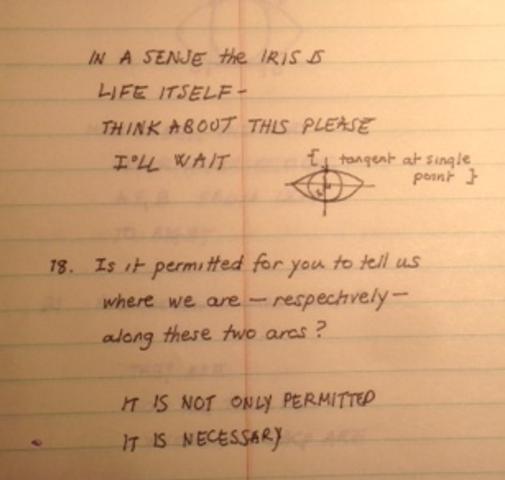 IN A SENSE the IRIS IS
LIFE ITSELF -
THINK ABOUT THIS PLEASE
I'LL WAIT
{ tangent at single
point }
18. Is it permitted for you to tell us
where we are — respectvely —
along these two arcs?
IT IS NOT ONLY PERMITTED
IT IS NECESSARY